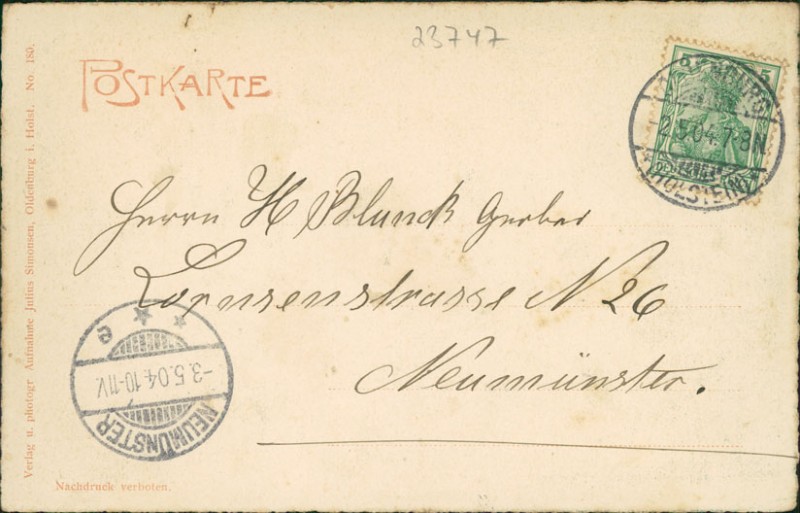 23747
POSTKARTE
5 5
2.5.04.7-8N.
(HOLSTEIN)
Herrn H Blunck Gerber
Lornsenstrasse N 26
Neumünster.
NEUMÜNSTER
-3.5.04.10-11V.
a
Verlag u. photogr Aufnahme Julius Simonsen, Oldenburg i. Holst. No. 180.
Nachdruck verboten.